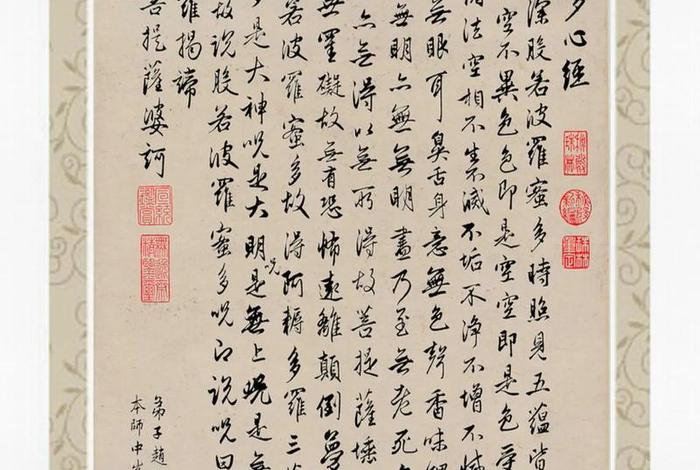 多心經
深般若波羅蜜多時照見五蘊皆
空不異色色即是空空即是色受
諸法空相不生不滅不垢不淨不增不減
無眼耳鼻舌身意無色聲香味觸
無明亦無無明盡乃至無老死
亦無得以無所得故菩提薩埵
無罣礙故無有恐怖遠離顛倒夢
若波羅蜜多故得阿耨多羅三藐
是大神呪是大明呪是無上呪是無
故說般若波羅蜜多呪即說呪曰
羅揭諦
菩提薩婆訶
弟子趙
本師中